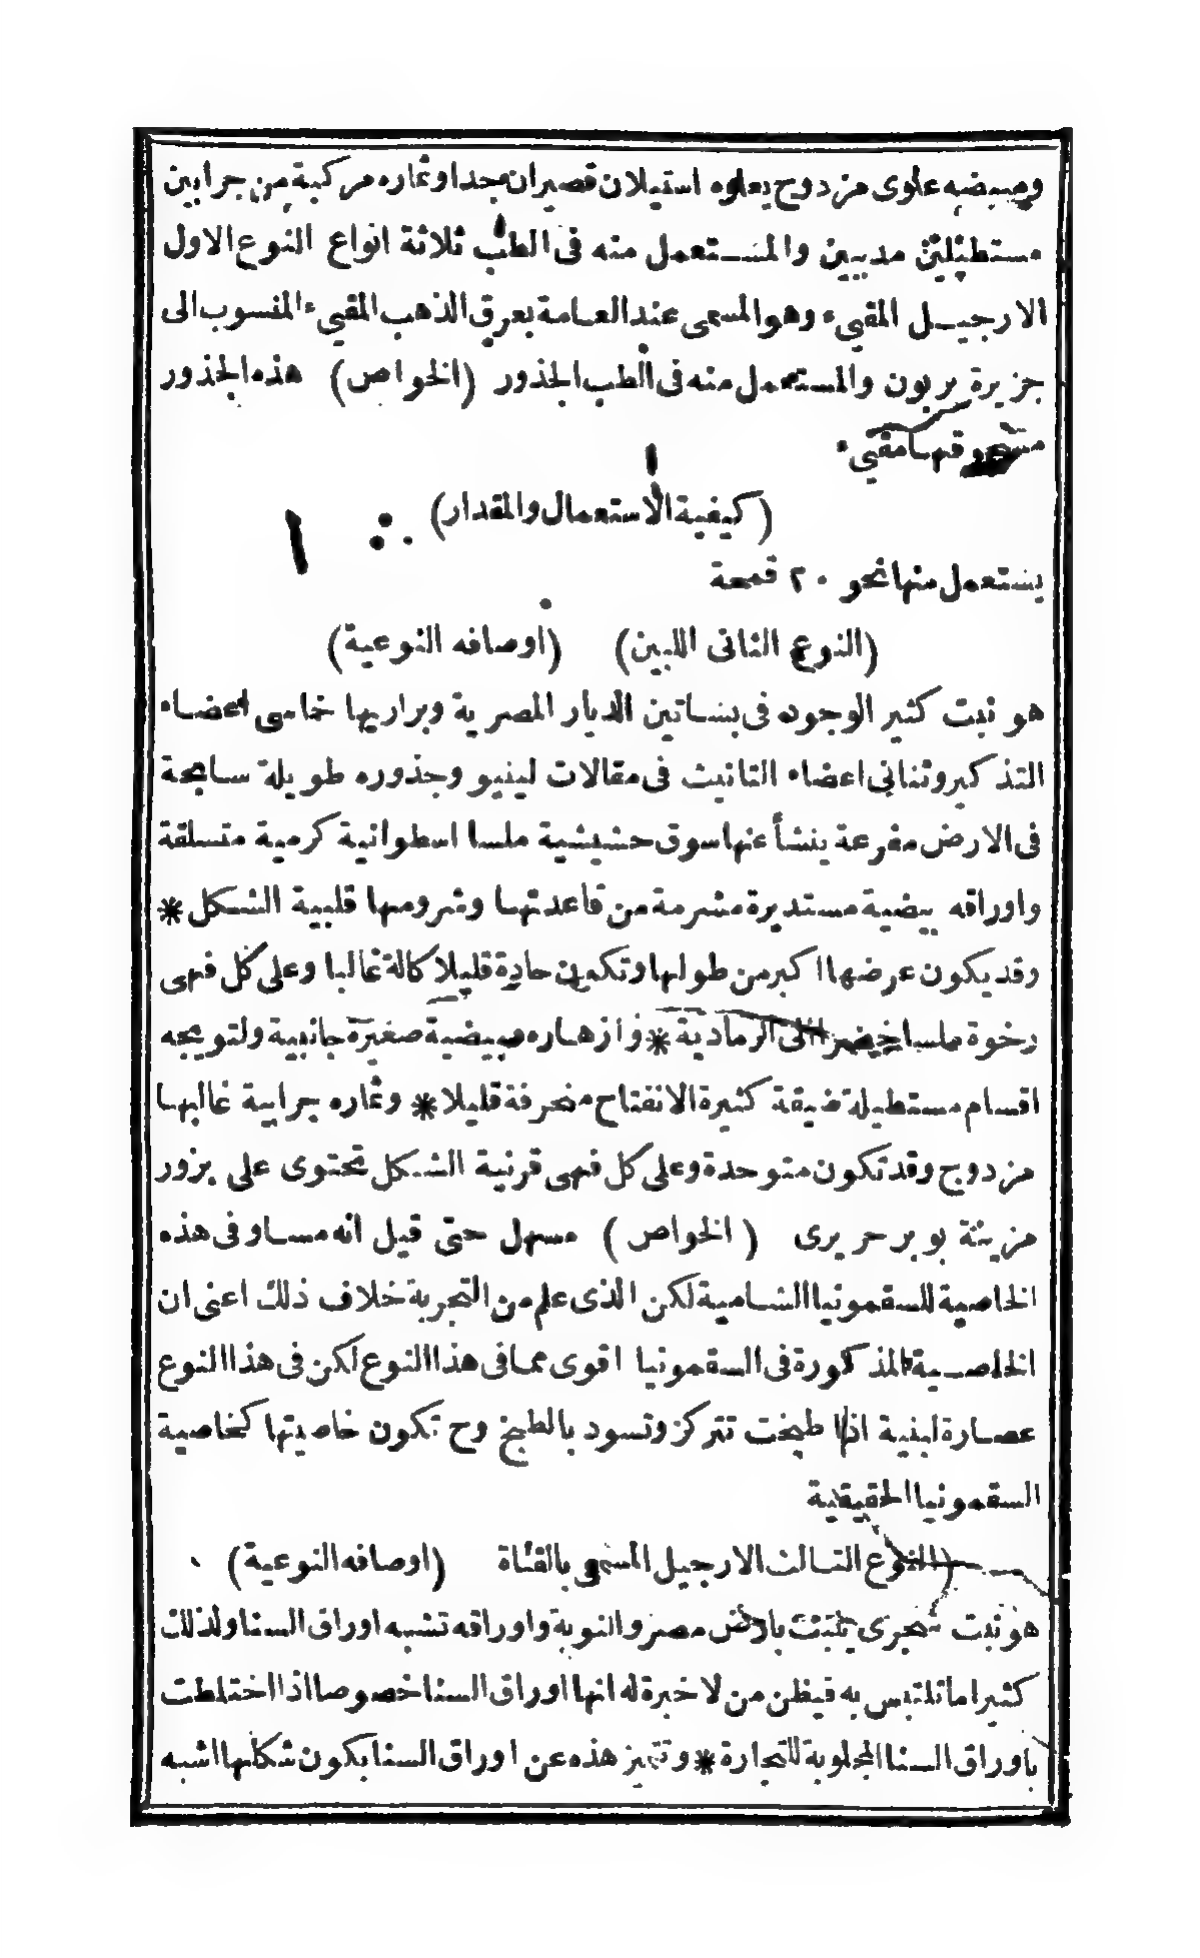 ومبيضه علوى مزدوج يعلوه استيلان قصيران جدا وثماره مركبة من جرابين
مستطيلين مدببين والمستعمل منه فى الطب ثلاثة انواع النوع الاول
الارجيل المقيىء وهو المسمى عند العامة بعرق الذهب المقيىء المنسوب الى
جزيرة بربون والمستعمل منه فى الطب الجذور (الخواص) هذه الجذور
مسحوقها مقيىء
(كيفية الاستعمال والمقدار)
يستعمل منها نحو ٢٠ قمحة
(النوع الثانى اللبين) (اوصافه النوعية)
هو نبت كثير الوجود فى بساتين الديار المصرية وبراريها خماسى اعضاء
التذكير وثنائى اعضاء التانيث فى مقالات لينيو وجذوره طويلة سابحة
فى الارض مفرعة ينشأ عنها سوق حشيشية ملسا اسطوانية كرمية متسلقة
واوراقه بيضية مستديرة مشرمة من قاعدتها وشرومها قلبية الشكل *
وقد يكون عرضها اكبر من طولها وتكون حادة قليلا كالة غالبا وعلى كل فهى
رخوة ملسا خضر الى الرمادية * وازهاره مبيضية صغيرة جانبية ولتويجه
اقسام مستطيلة ضيقة كثيرة الانفتاح منحرفة قليلا * وثماره جرابية غالبها
مزدوج وقد تكون متوحدة وعلى كل فهى قرنية الشكل تحتوى على بزور
مزينة بوبر حريرى (الخواص) مسهل حتى قيل انه مساو فى هذه
الخاصية للسقمونيا الشامية لكن الذى علم من التجربة خلاف ذلك اعنى ان
الخاصية المذكورة فى السقمونيا اقوى مما فى هذا النوع لكن فى هذا النوع
عصارة لبنية اذا طبخت تتركز وتسود بالطبخ وح تكون خاصيتها كخاصية
السقمونيا الحقيقية
(النوع الثالث الارجيل المسمى بالقثاة (اوصافه النوعية)
هو نبت شجرى ينبت بارض مصر والنوبة واوراقه تشبه اوراق السنا ولذلك
كثيرا ما تلتبس به فيظن من لا خبرة له انها اوراق السنا خصوصا اذا اختلطت
باوراق السنا المجلوبة للتجارة * وتتميز هذه عن اوراق السنا بكون شكلها اشبه